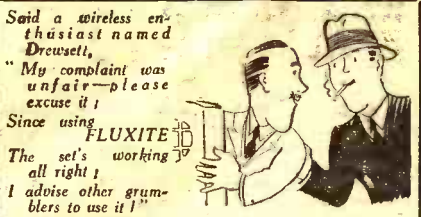 Said a wireless en-
thusiast named
Drewsett,
" My complaint was
unfair—please
excuse it ;
Since using
FLUXITE
The set's working
all right ;
I advise other grum-
blers to use it ! "